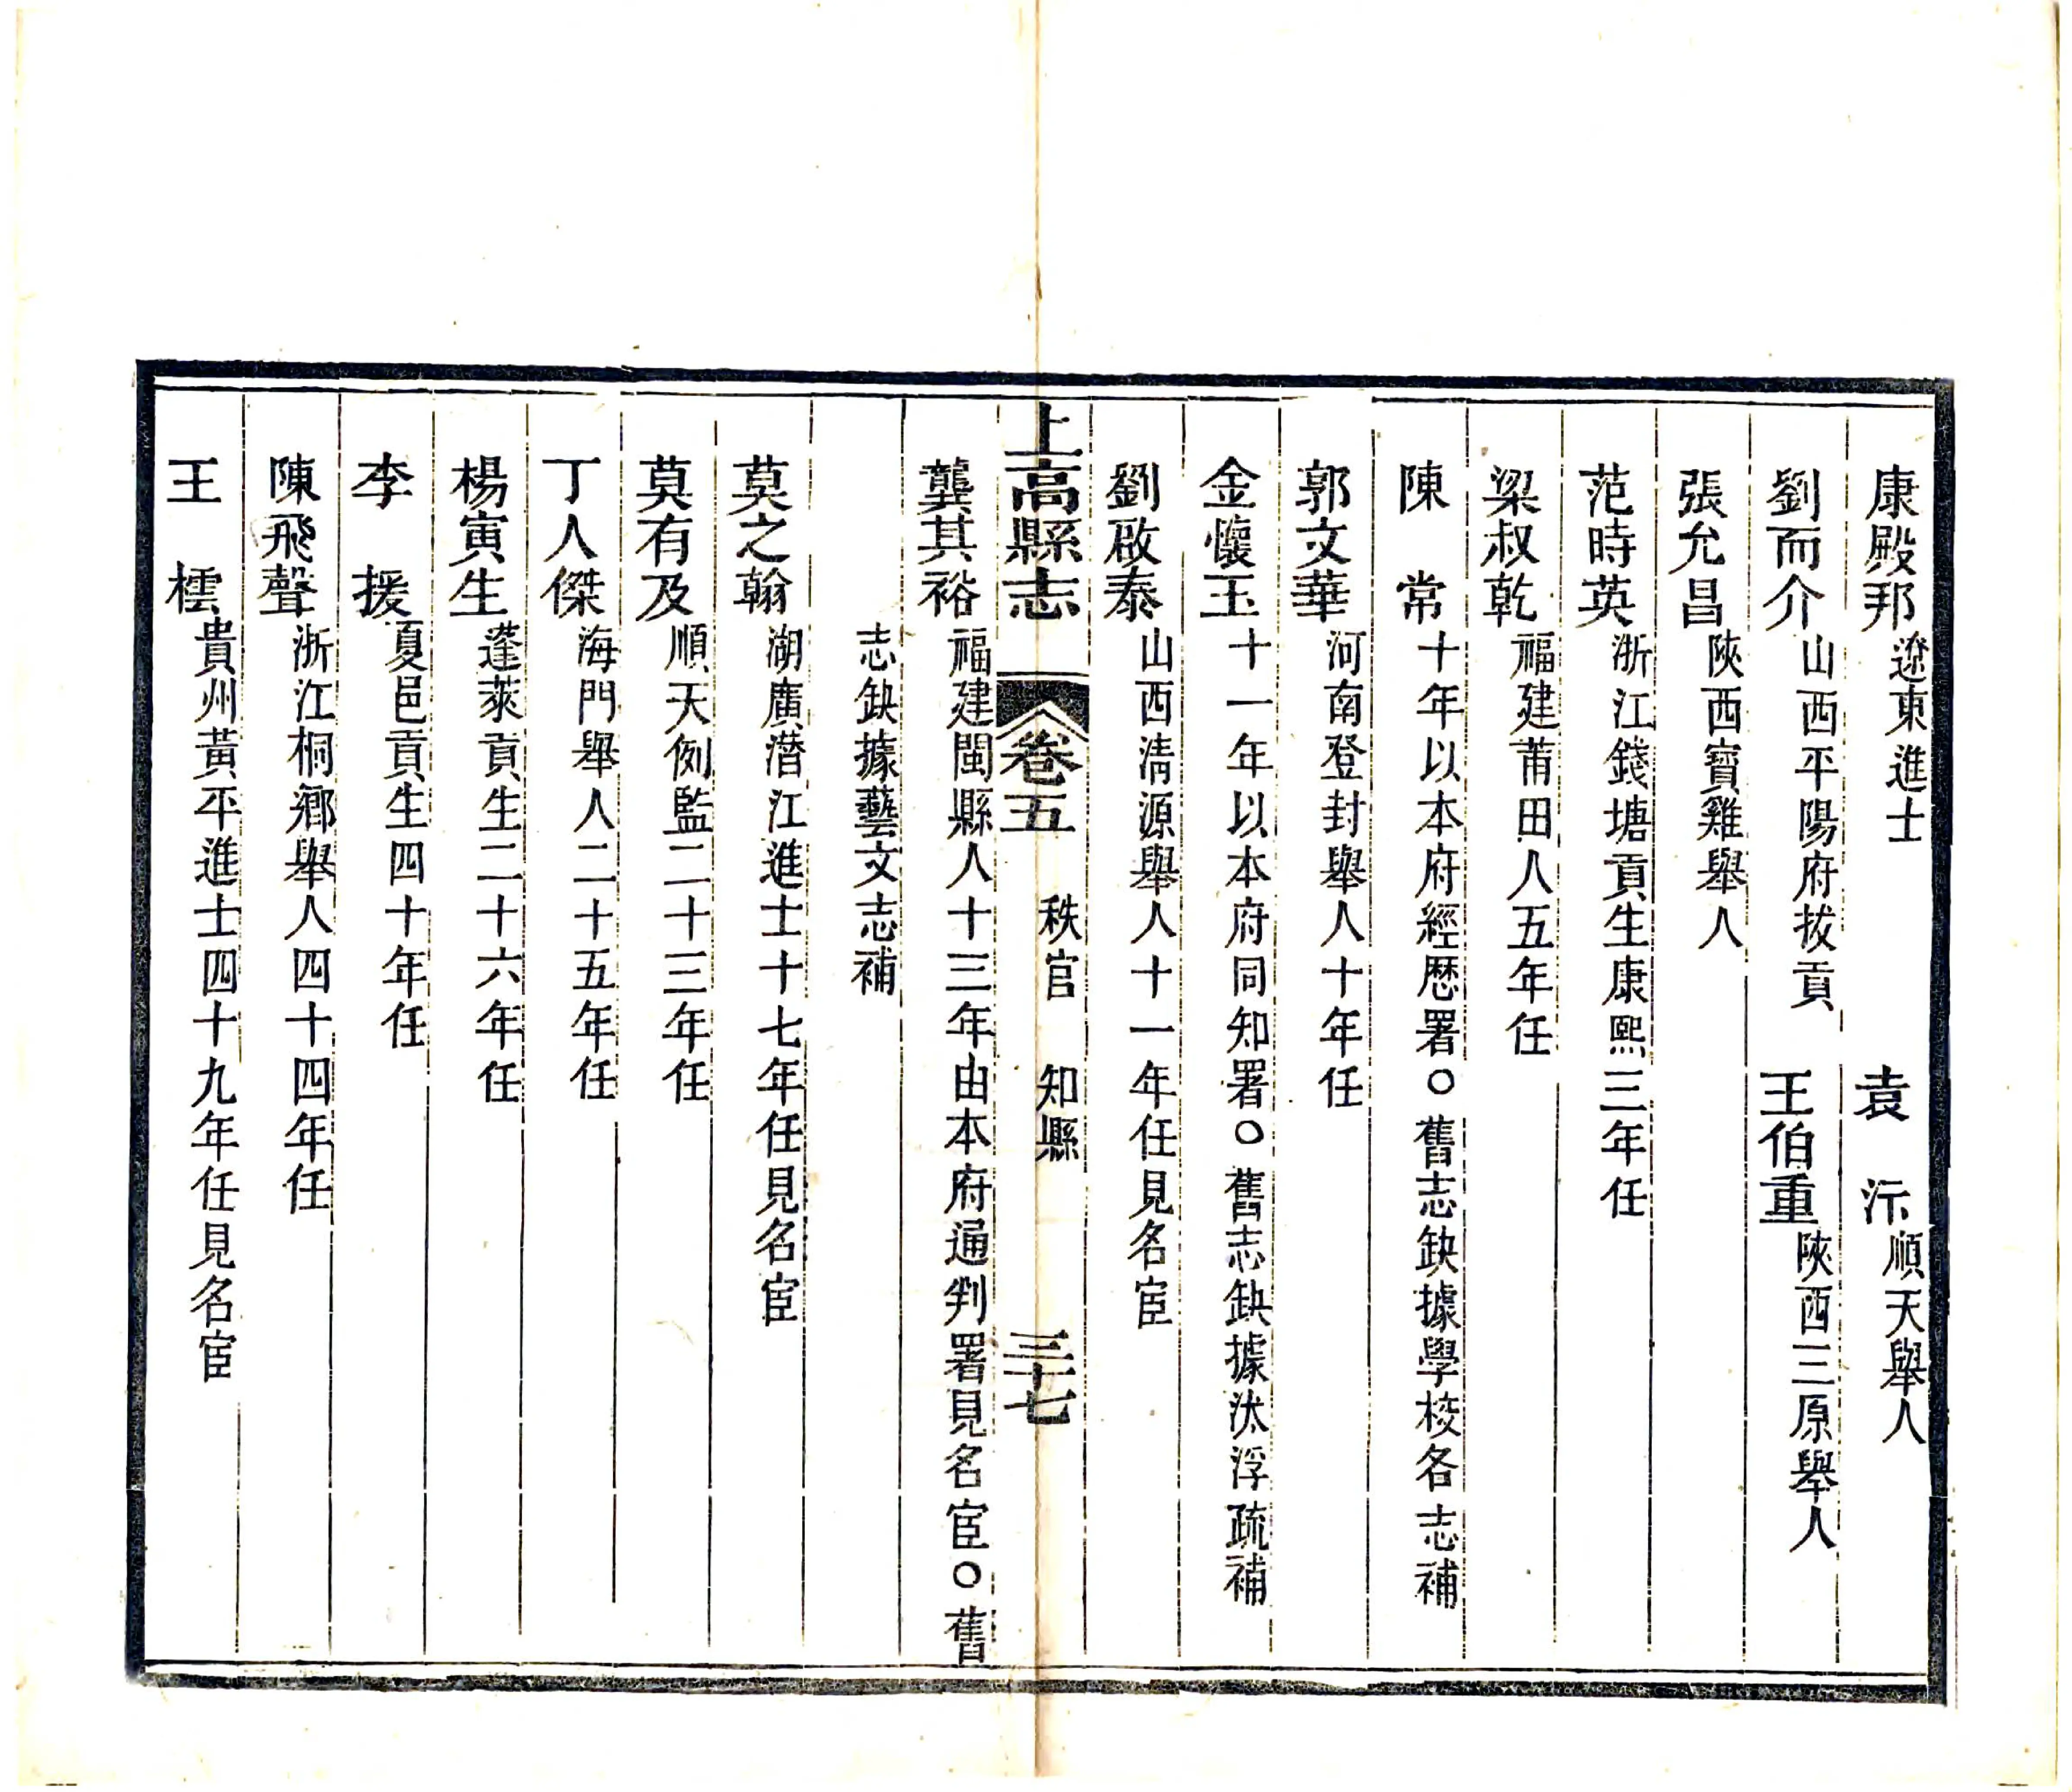 康殿邦遼東進士　袁　沶順天舉人
劉而介山西平陽府拔貢　王伯重陝西三原舉人
張允昌陝西寶雞舉人
范時英浙江錢塘貢生康熙三年任
梁叔乾福建莆田人五年任
陳　常十年以本府經歷署○舊志缺據學校各志補
郭文華河南登封舉人十年任
金懷玉十一年以本府同知署○舊志缺據汰浮疏補
劉啟泰山西淸源舉人十一年任見名宦
上高縣志　卷五　秩官　知縣　三十七
龔其裕福建閩縣人十三年由本府通判署見名宦○舊
志缺據藝文志補
莫之翰湖廣潛江進士十七年任見名宦
莫有及順天例監二十三年任
丁人傑海門舉人二十五年任
楊寅生蓬萊貢生二十六年任
李　援夏邑貢生四十年任
陳飛聲浙江桐鄉舉人四十四年任
王　橒貴州黃平進士四十九年任見名宦